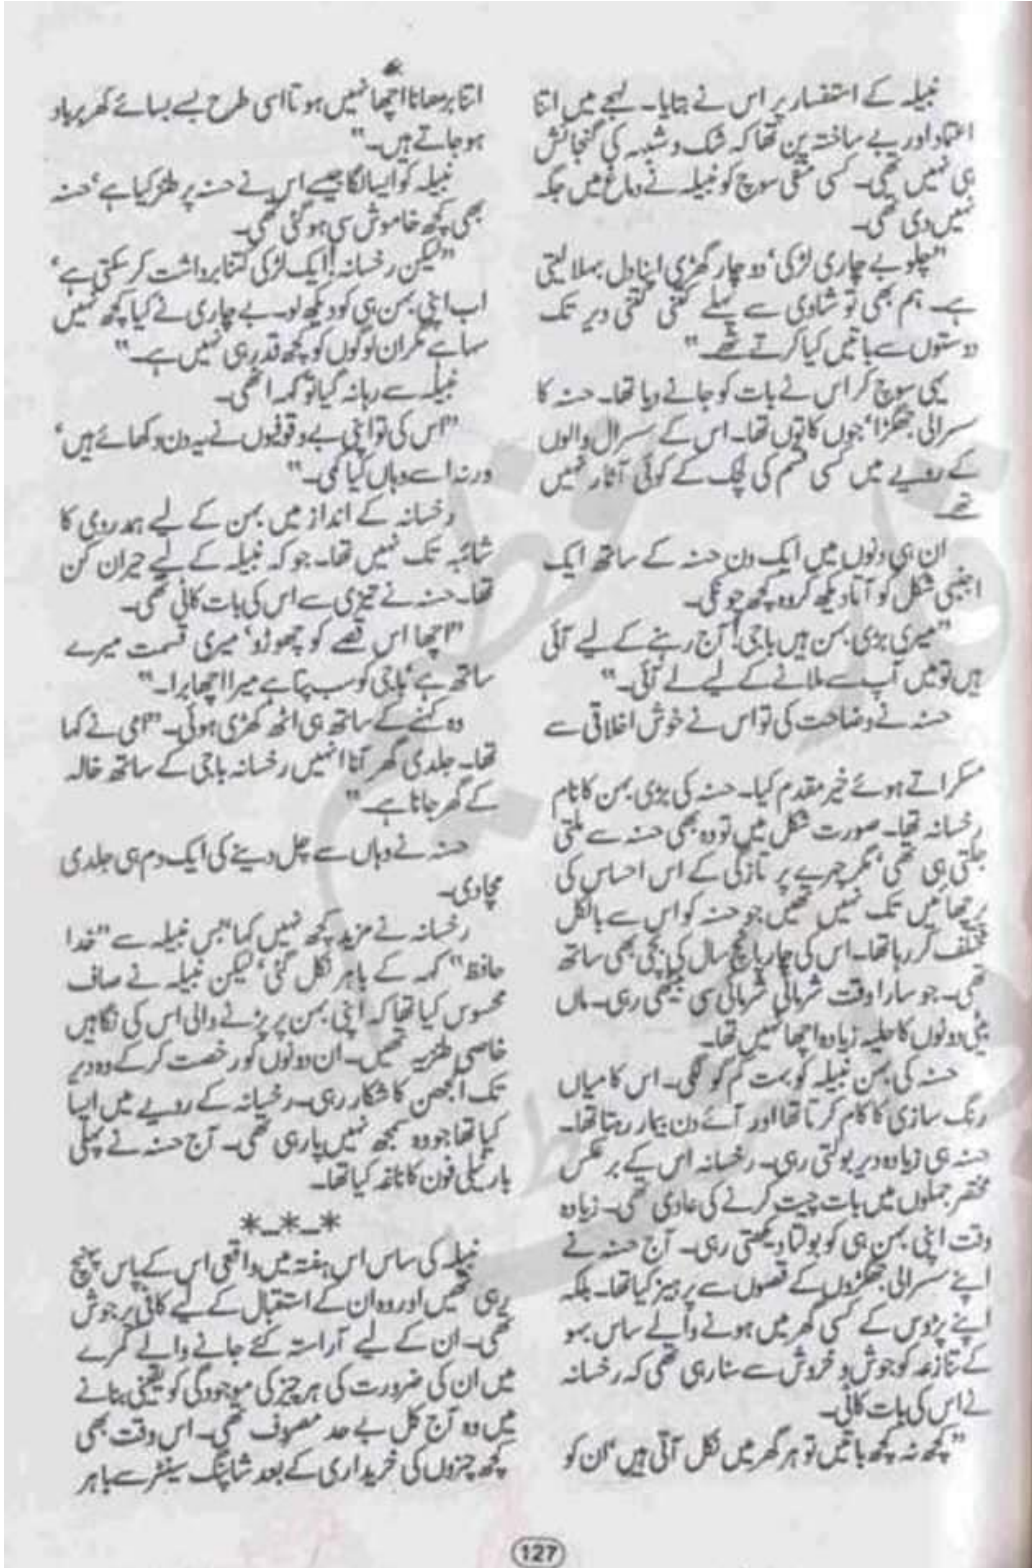 نبیلہ کے استفسار پر اس نے بتایا۔ لہجے میں اتنا
اعتماد اور بے ساختہ پن تھا کہ شک و شبہ کی گنجائش
ہی نہیں تھی۔ کسی منفی سوچ کو نبیلہ نے دماغ میں جگہ
نہیں دی تھی۔
"چلو بے چاری لڑکی، دو چار گھڑی اپنا دل بہلا لیتی
ہے۔ ہم بھی تو شادی سے پہلے کتنی کتنی دیر تک
دوستوں سے باتیں کیا کرتے تھے۔"
یہی سوچ کر اس نے بات کو جانے دیا تھا۔ حسنہ کا
سسرالی جھگڑا، جوں کا توں تھا۔ اس کے سسرال والوں
کے رویے میں کسی قسم کی لچک کے کوئی آثار نہیں
تھے۔
ان ہی دنوں میں ایک دن حسنہ کے ساتھ ایک
اجنبی شکل کو آتا دیکھ کر وہ کچھ چونکی۔
"میری بڑی بہن ہیں باجی! آج رہنے کے لیے آئی
ہیں تو میں آپ سے ملانے کے لیے لے آئی۔"
حسنہ نے وضاحت کی تو اس نے خوش اخلاقی سے
مسکراتے ہوئے خیر مقدم کیا۔ حسنہ کی بڑی بہن کا نام
رخسانہ تھا۔ صورت شکل میں تو وہ بھی حسنہ سے ملتی
جلتی ہی تھی، مگر چہرے پر تازگی کے اس احساس کی
پرچھائیں تک نہیں تھیں جو حسنہ کو اس سے بالکل
مختلف کر رہا تھا۔ اس کی چار پانچ سال کی بچی بھی ساتھ
تھی۔ جو سارا وقت شرمائی شرمائی سی بیٹھی رہی۔ ماں
بیٹی دونوں کا حلیہ زیادہ اچھا نہیں تھا۔
حسنہ کی بہن نبیلہ کو بہت کم گو لگی۔ اس کا میاں
رنگ سازی کا کام کرتا تھا اور آئے دن بیکار رہتا تھا۔
حسنہ ہی زیادہ دیر بولتی رہی۔ رخسانہ اس کے برعکس
مختصر جملوں میں بات چیت کرنے کی عادی تھی۔ زیادہ
وقت اپنی بہن ہی کو بولتا دیکھتی رہی۔ آج حسنہ نے
اپنے سسرالی جھگڑوں کے قصوں سے پرہیز کیا تھا۔ بلکہ
اپنے پڑوس کے کسی گھر میں ہونے والے ساس بہو
کے تنازعہ کو جوش و خروش سے سنا رہی تھی کہ رخسانہ
نے اس کی بات کاٹی۔
"کچھ نہ کچھ باتیں تو ہر گھر میں نکل آتی ہیں، ان کو
اتنا بڑھانا اچھا نہیں ہوتا اسی طرح بسے بسائے گھر برباد
ہو جاتے ہیں۔"
نبیلہ کو ایسا لگا جیسے اس نے حسنہ پر طنز کیا ہے، حسنہ
بھی کچھ خاموش سی ہو گئی تھی۔
"لیکن رخسانہ! ایک لڑکی کتنا برداشت کر سکتی ہے،
اب اپنی بہن ہی کو دیکھ لو۔ بے چاری نے کیا کچھ نہیں
سہا ہے مگر ان لوگوں کو کچھ قدر ہی نہیں ہے۔"
نبیلہ سے رہا نہ گیا تو کہہ اٹھی۔
"اس کی تو اپنی بے وقوفیوں نے یہ دن دکھائے ہیں،
ورنہ اسے وہاں کیا کمی۔"
رخسانہ کے انداز میں بہن کے لیے ہمدردی کا
شائبہ تک نہیں تھا۔ جو کہ نبیلہ کے لیے حیران کن
تھا۔ حسنہ نے تیزی سے اس کی بات کاٹی تھی۔
"اچھا اس قصے کو چھوڑو، میری قسمت میرے
ساتھ ہے، باجی کو سب پتا ہے میرا اچھا برا۔"
وہ کہنے کے ساتھ ہی اٹھ کھڑی ہوئی۔ "امی نے کہا
تھا۔ جلدی گھر آنا انہیں رخسانہ باجی کے ساتھ خالہ
کے گھر جانا ہے۔"
حسنہ نے وہاں سے چل دینے کی ایک دم ہی جلدی
مچا دی۔
رخسانہ نے مزید کچھ نہیں کہا، بس نبیلہ سے "خدا
حافظ" کہہ کے باہر نکل گئی، لیکن نبیلہ نے صاف
محسوس کیا تھا کہ اپنی بہن پر پڑنے والی اس کی نگاہیں
خاصی طنزیہ تھیں۔ ان دونوں کو رخصت کر کے وہ دیر
تک الجھن کا شکار رہی۔ رخسانہ کے رویے میں ایسا
کیا تھا جو وہ سمجھ نہیں پا رہی تھی۔ آج حسنہ نے پہلی
بار ٹیلی فون کا ناغہ کیا تھا۔
*_*_*
نبیلہ کی ساس اس ہفتہ میں واقعی اس کے پاس پہنچ
رہی تھیں اور وہ ان کے استقبال کے لیے کافی پرجوش
تھی۔ ان کے لیے آراستہ کئے جانے والے کمرے
میں ان کی ضرورت کی ہر چیز کی موجودگی کو یقینی بنانے
میں وہ آج کل بے حد مصروف تھی۔ اس وقت بھی
کچھ چیزوں کی خریداری کے بعد شاپنگ سینٹر سے باہر
127